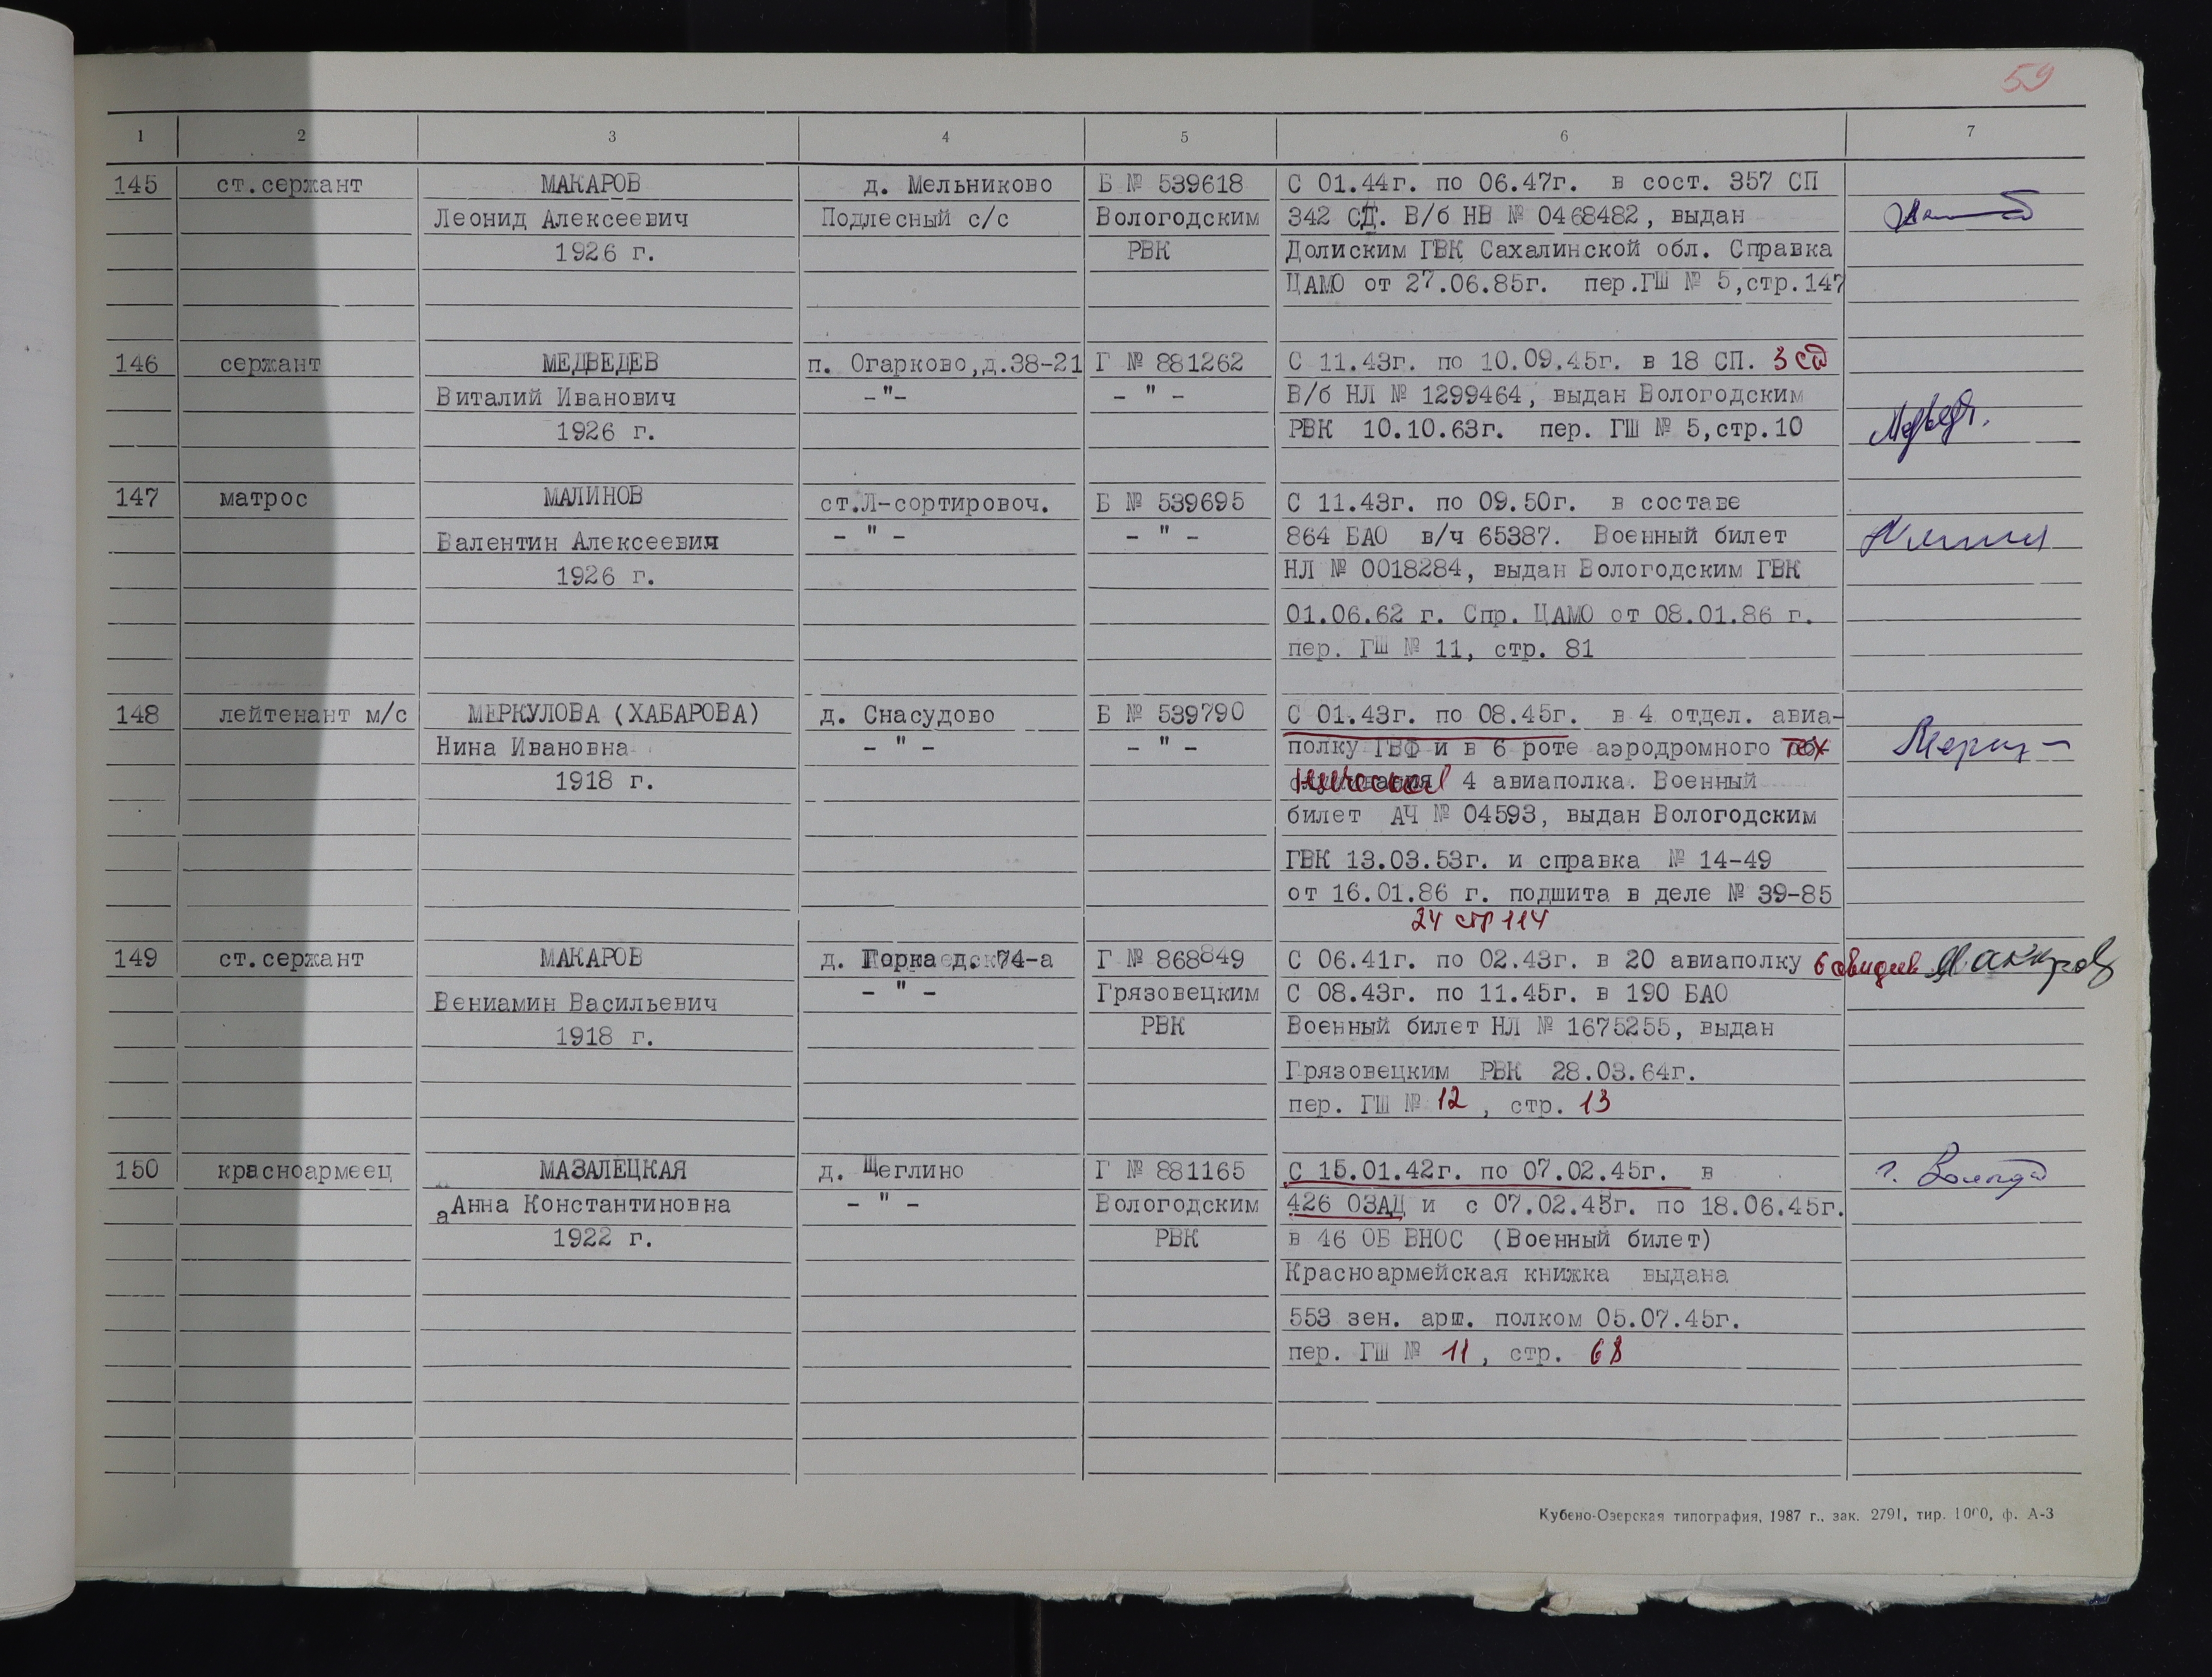 59
1 2 3 4 5 6 7
145 ст.сержант МАКАРОВ д. Мельниково Б № 539618 С 01.44г. по 06.47г. в сост. 357 СП
Леонид Алексеевич Подлесный с/с Вологодским 342 СД. В/б НВ № 0468482, выдан
1926 г. РВК Долиским ГВК Сахалинской обл. Справка
ЦАМО от 27.06.85г. пер.ГШ № 5,стр.147
146 сержант МЕДВЕДЕВ п. Огарково,д.38-21 Г № 881262 С 11.43г. по 10.09.45г. в 18 СП. 3 сд
Виталий Иванович -"- - " - В/б НЛ № 1299464, выдан Вологодским
1926 г. РВК 10.10.63г. пер. ГШ № 5,стр.10
147 матрос МАЛИНОВ ст.Л-сортировоч. Б № 539695 С 11.43г. по 09.50г. в составе
Валентин Алексеевич - " - - " - 864 БАО в/ч 65387. Военный билет
1926 г. НЛ № 0018284, выдан Вологодским ГВК
01.06.62 г. Спр. ЦАМО от 08.01.86 г.
пер. ГШ № 11, стр. 81
148 лейтенант м/с МЕРКУЛОВА (ХАБАРОВА) д. Снасудово Б № 539790 С 01.43г. по 08.45г. в 4 отдел. авиа-
Нина Ивановна - " - - " - полку ГВФ и в 6 роте аэродромного тех
1918 г. 4 авиаполка. Военный
билет АЧ № 04593, выдан Вологодским
ГВК 13.03.53г. и справка № 14-49
от 16.01.86 г. подшита в деле № 39-85
24 стр 114
149 ст.сержант МАКАРОВ д. Горка д. 74-а Г № 868849 С 06.41г. по 02.43г. в 20 авиаполку Макаров
Вениамин Васильевич - " - Грязовецким С 08.43г. по 11.45г. в 190 БАО
1918 г. РВК Военный билет НЛ № 1675255, выдан
Грязовецким РВК 28.03.64г.
пер. ГШ № 12 , стр. 13
150 красноармеец МАЗАЛЕЦКАЯ д. Щеглино Г № 881165 С 15.01.42г. по 07.02.45г. в г. Вологда
Анна Константиновна - " - Вологодским 426 ОЗАД и с 07.02.45г. по 18.06.45г.
1922 г. РВК в 46 ОБ ВНОС (Военный билет)
Красноармейская книжка выдана
553 зен. арт. полком 05.07.45г.
пер. ГШ № 11 , стр. 68
Кубено-Озерская типография, 1987 г., зак. 2791, тир. 1000, ф. А-3